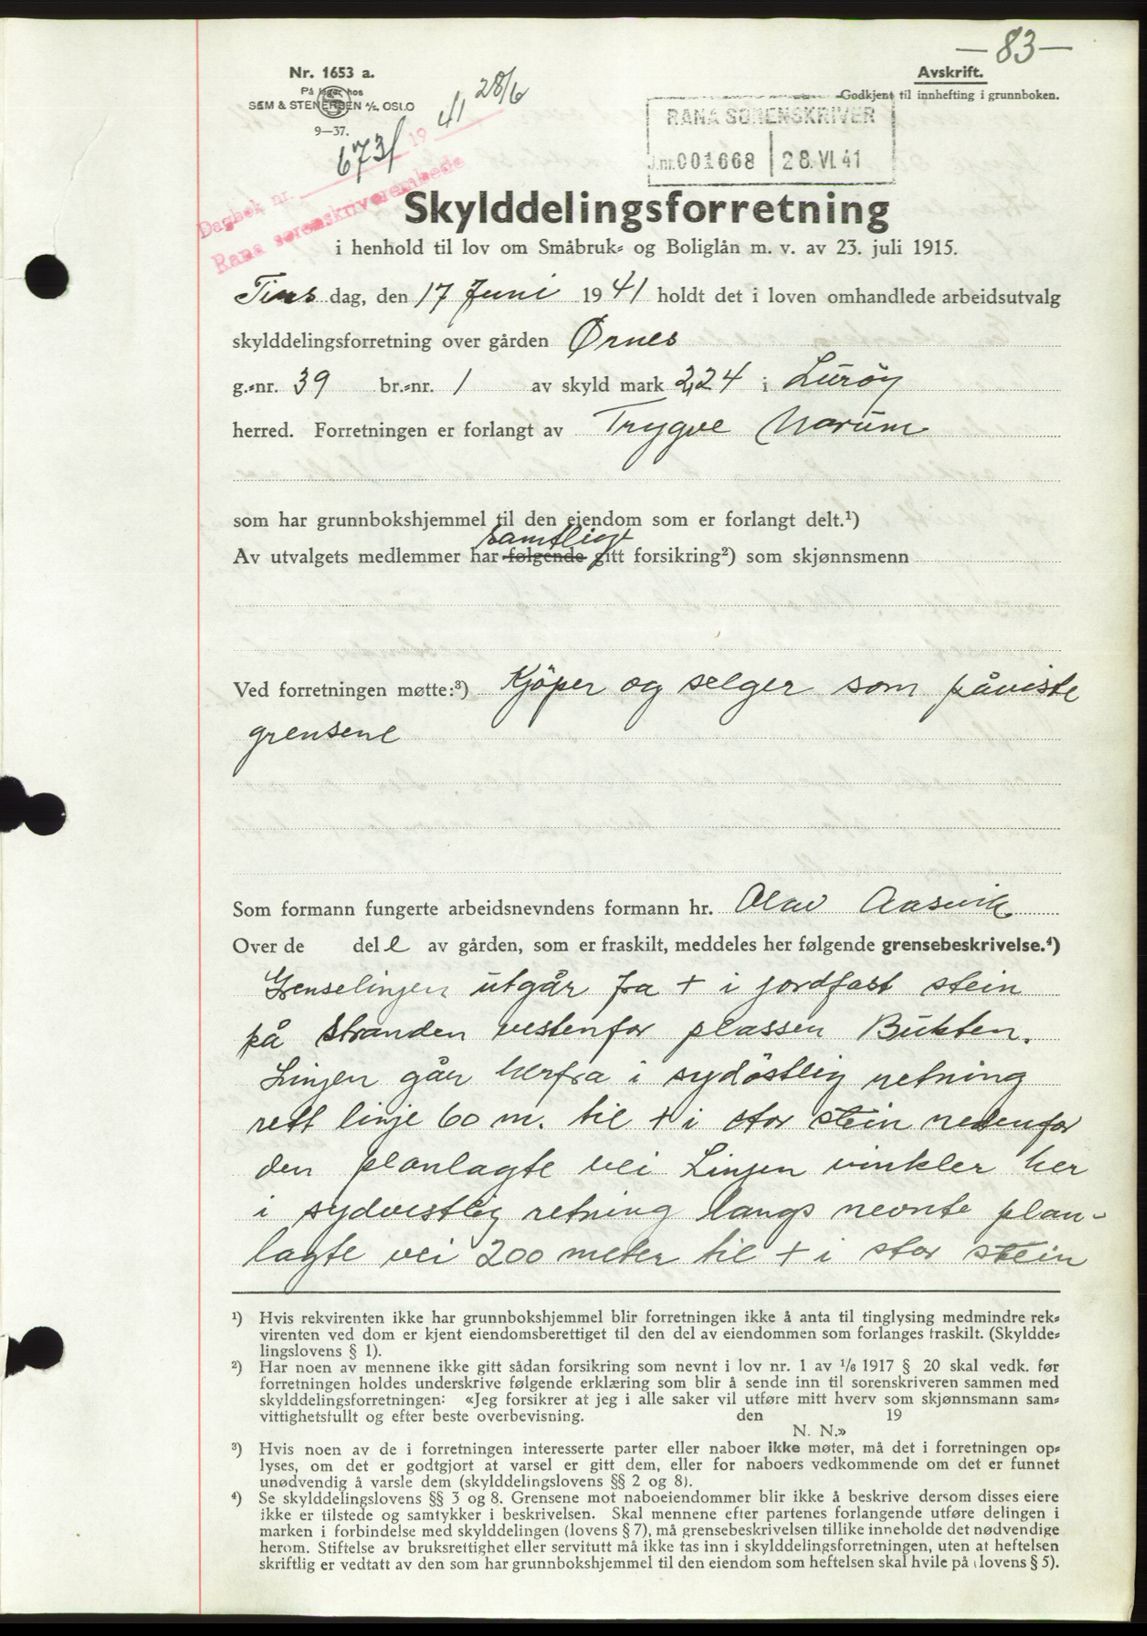 —83—
Nr. 1653 a.
På lager hos
SEM & STENERSEN A/S, OSLO
9—37.
Avskrift.
Godkjent til innhefting i grunnboken.
Dagbok nr. 673/ 19 41 28/6
Rana sorenskriverembede
RANA SORENSKRIVER
J.nr. 001668 28. VI. 41
Skylddelingsforretning
i henhold til lov om Småbruk- og Boliglån m. v. av 23. juli 1915.
Tirsdag, den 17 Juni 1941 holdt det i loven omhandlede arbeidsutvalg
skylddelingsforretning over gården Ørnes
g.-nr. 39 br.-nr. 1 av skyld mark 2,24 i Lurøy
herred. Forretningen er forlangt av Trygve Marum
som har grunnbokshjemmel til den eiendom som er forlangt delt.¹)
samtlige
Av utvalgets medlemmer har følgende gitt forsikring²) som skjønnsmenn
Ved forretningen møtte:³) Kjöper og selger som påviste
grensene
Som formann fungerte arbeidsnevndens formann hr. Olav Aasvik
Over de del e av gården, som er fraskilt, meddeles her følgende grensebeskrivelse.⁴)
Grenselinjen utgår fra + i jordfast stein
på stranden vestenfor plassen Bukten.
Linjen går herfra i sydöstlig retning
rett linje 60 m. til + i stor stein nedenfor
den planlagte vei Linjen vinkler her
i sydvestlig retning langs nevnte plan-
lagte vei 200 meter til + i stor stein
¹) Hvis rekvirenten ikke har grunnbokshjemmel blir forretningen ikke å anta til tinglysing medmindre rek-
virenten ved dom er kjent eiendomsberettiget til den del av eiendommen som forlanges fraskilt. (Skyldde-
lingslovens § 1).
²) Har noen av mennene ikke gitt sådan forsikring som nevnt i lov nr. 1 av 1/6 1917 § 20 skal vedk. før
forretningen holdes underskrive følgende erklæring som blir å sende inn til sorenskriveren sammen med
skylddelingsforretningen: «Jeg forsikrer at jeg i alle saker vil utføre mitt hverv som skjønnsmann sam-
vittighetsfullt og efter beste overbevisning. den 19
N. N.»
³) Hvis noen av de i forretningen interesserte parter eller naboer ikke møter, må det i forretningen op-
lyses, om det er godtgjort at varsel er gitt dem, eller for naboers vedkommende om det er funnet
unødvendig å varsle dem (skylddelingslovens §§ 2 og 8).
⁴) Se skylddelingslovens §§ 3 og 8. Grensene mot naboeiendommer blir ikke å beskrive dersom disses eiere
ikke er tilstede og samtykker i beskrivelsen. Skal mennene efter partenes forlangende utføre delingen i
marken i forbindelse med skylddelingen (lovens § 7), må grensebeskrivelsen tillike inneholde det nødvendige
herom. Stiftelse av bruksrettighet eller servitutt må ikke tas inn i skylddelingsforretningen, uten at heftelsen
skriftlig er vedtatt av den som har grunnbokshjemmel til den eiendom som heftelsen skal hvile på (lovens § 5).